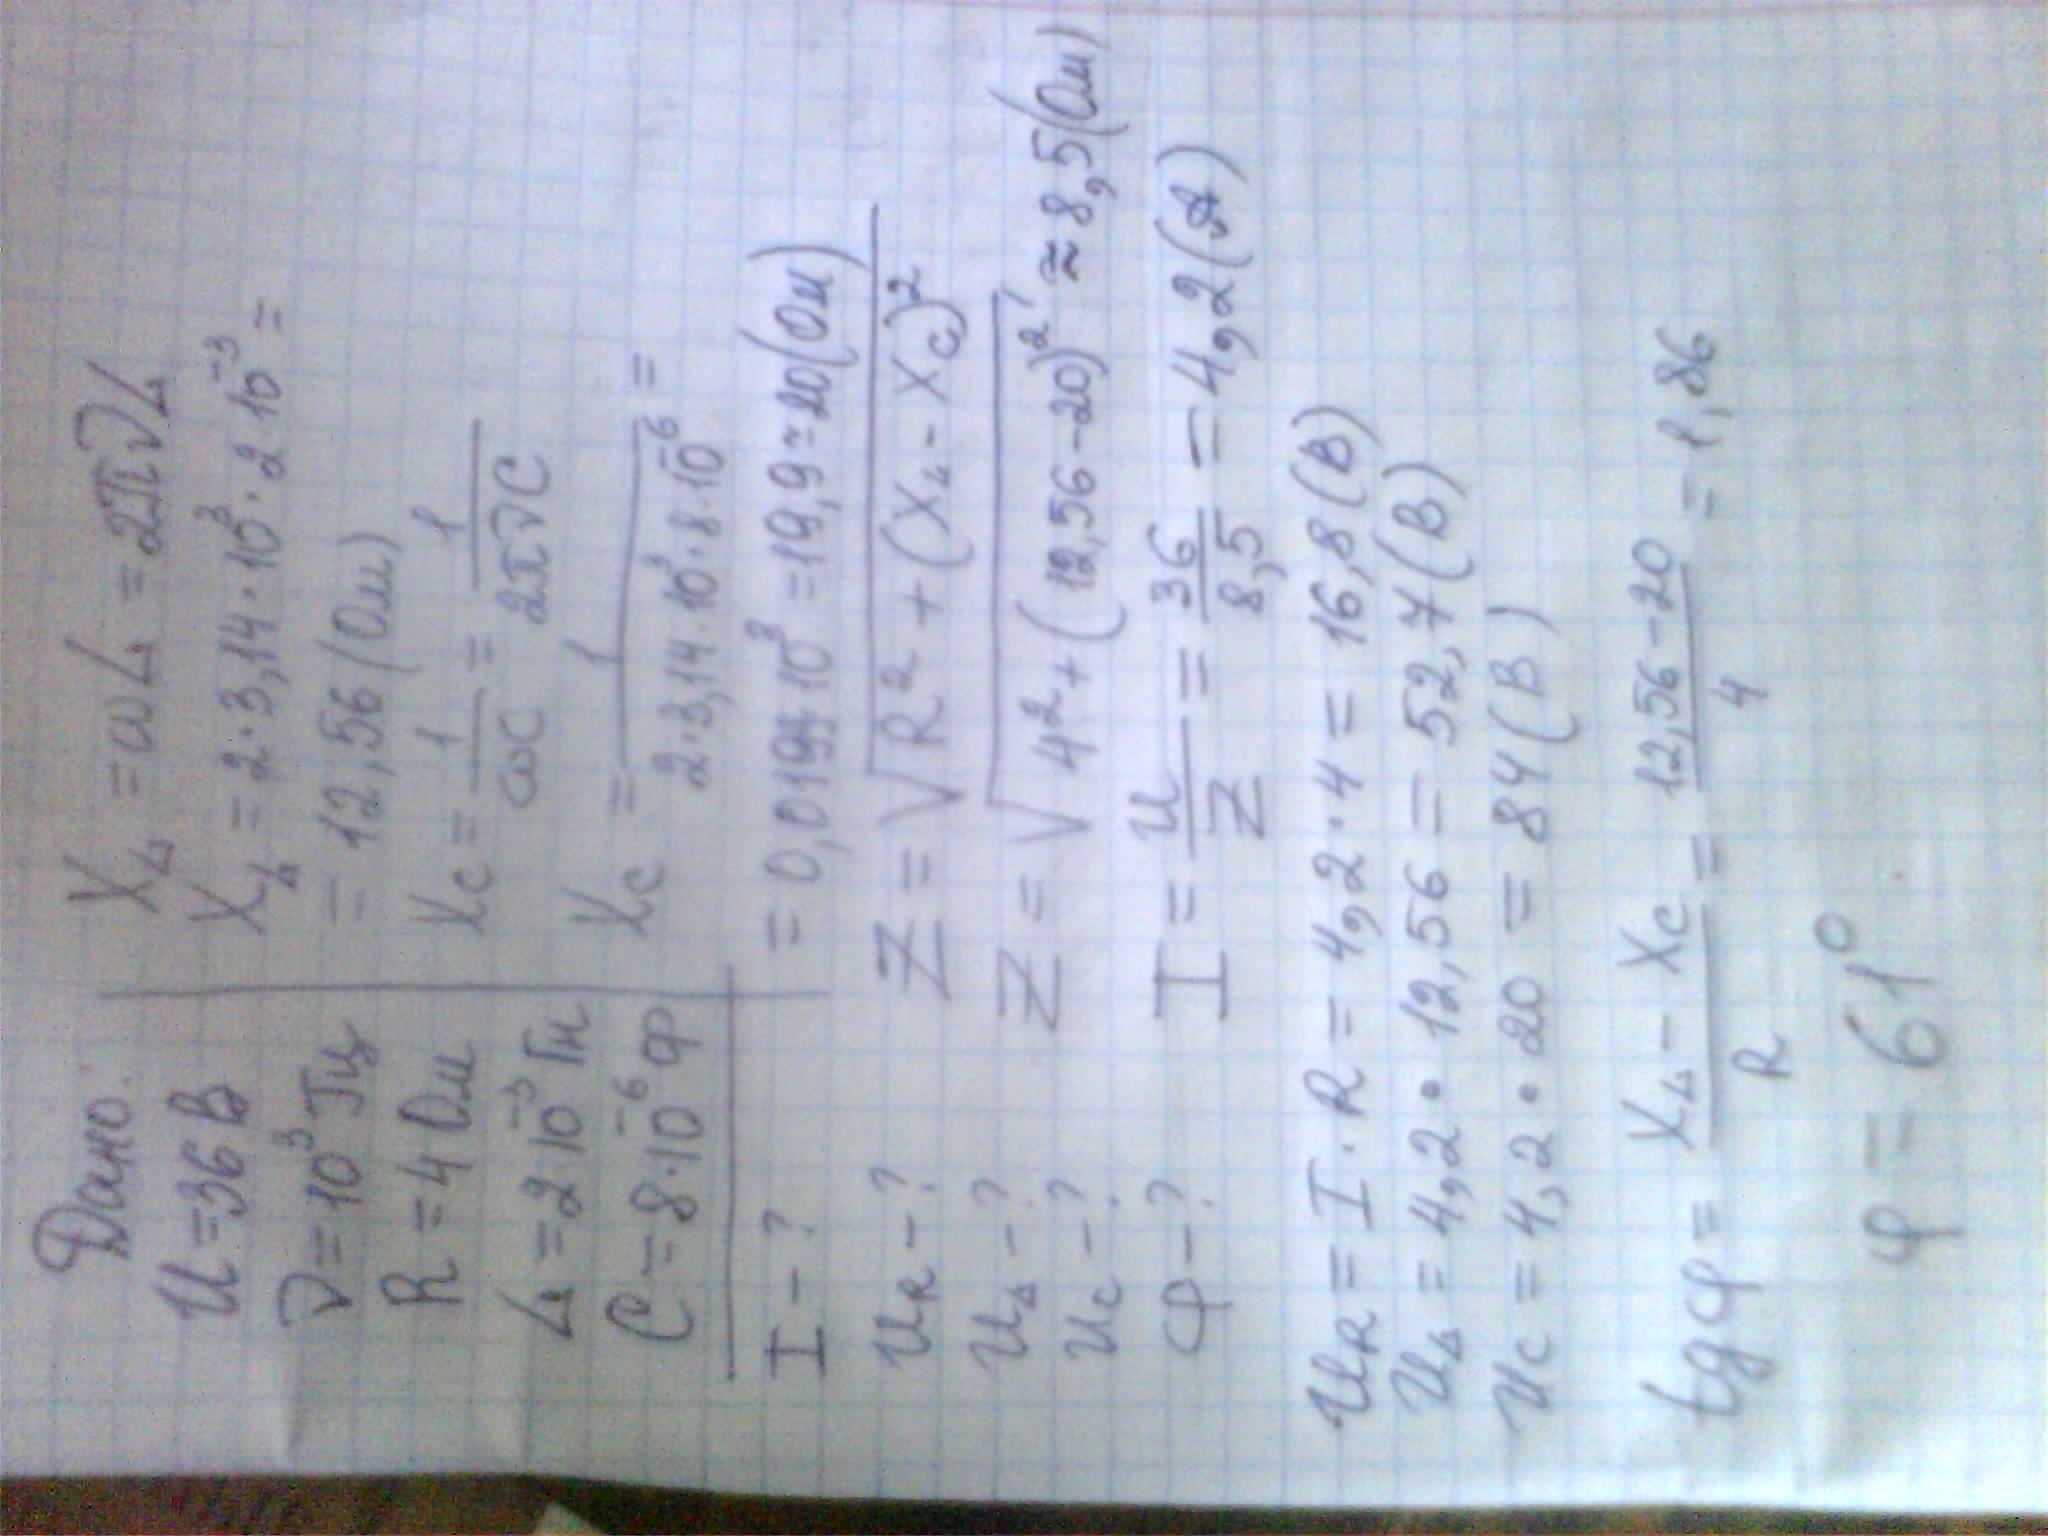 Дано:
U = 36 В
ν = 10³ Гц
R = 4 Ом
L = 2·10⁻³ Гн
C = 8·10⁻⁶ Ф
I - ?
U_R - ?
U_L - ?
U_C - ?
φ - ?
X_L = ωL = 2πνL
X_L = 2·3,14·10³·2·10⁻³ =
= 12,56 (Ом)
X_C = 1/ωC = 1/2πνC
X_C = 1/2·3,14·10³·8·10⁻⁶ =
= 0,0199·10³ = 19,9 ≈ 20 (Ом)
Z = √R² + (X_L - X_C)²
Z = √4² + (12,56 - 20)² ≈ 8,5 (Ом)
I = U/Z = 36/8,5 = 4,2 (А)
U_R = I·R = 4,2·4 = 16,8 (В)
U_L = 4,2·12,56 = 52,7 (В)
U_C = 4,2·20 = 84 (В)
tgφ = X_L - X_C/R = 12,56 - 20/4 = 1,86
φ = 61⁰